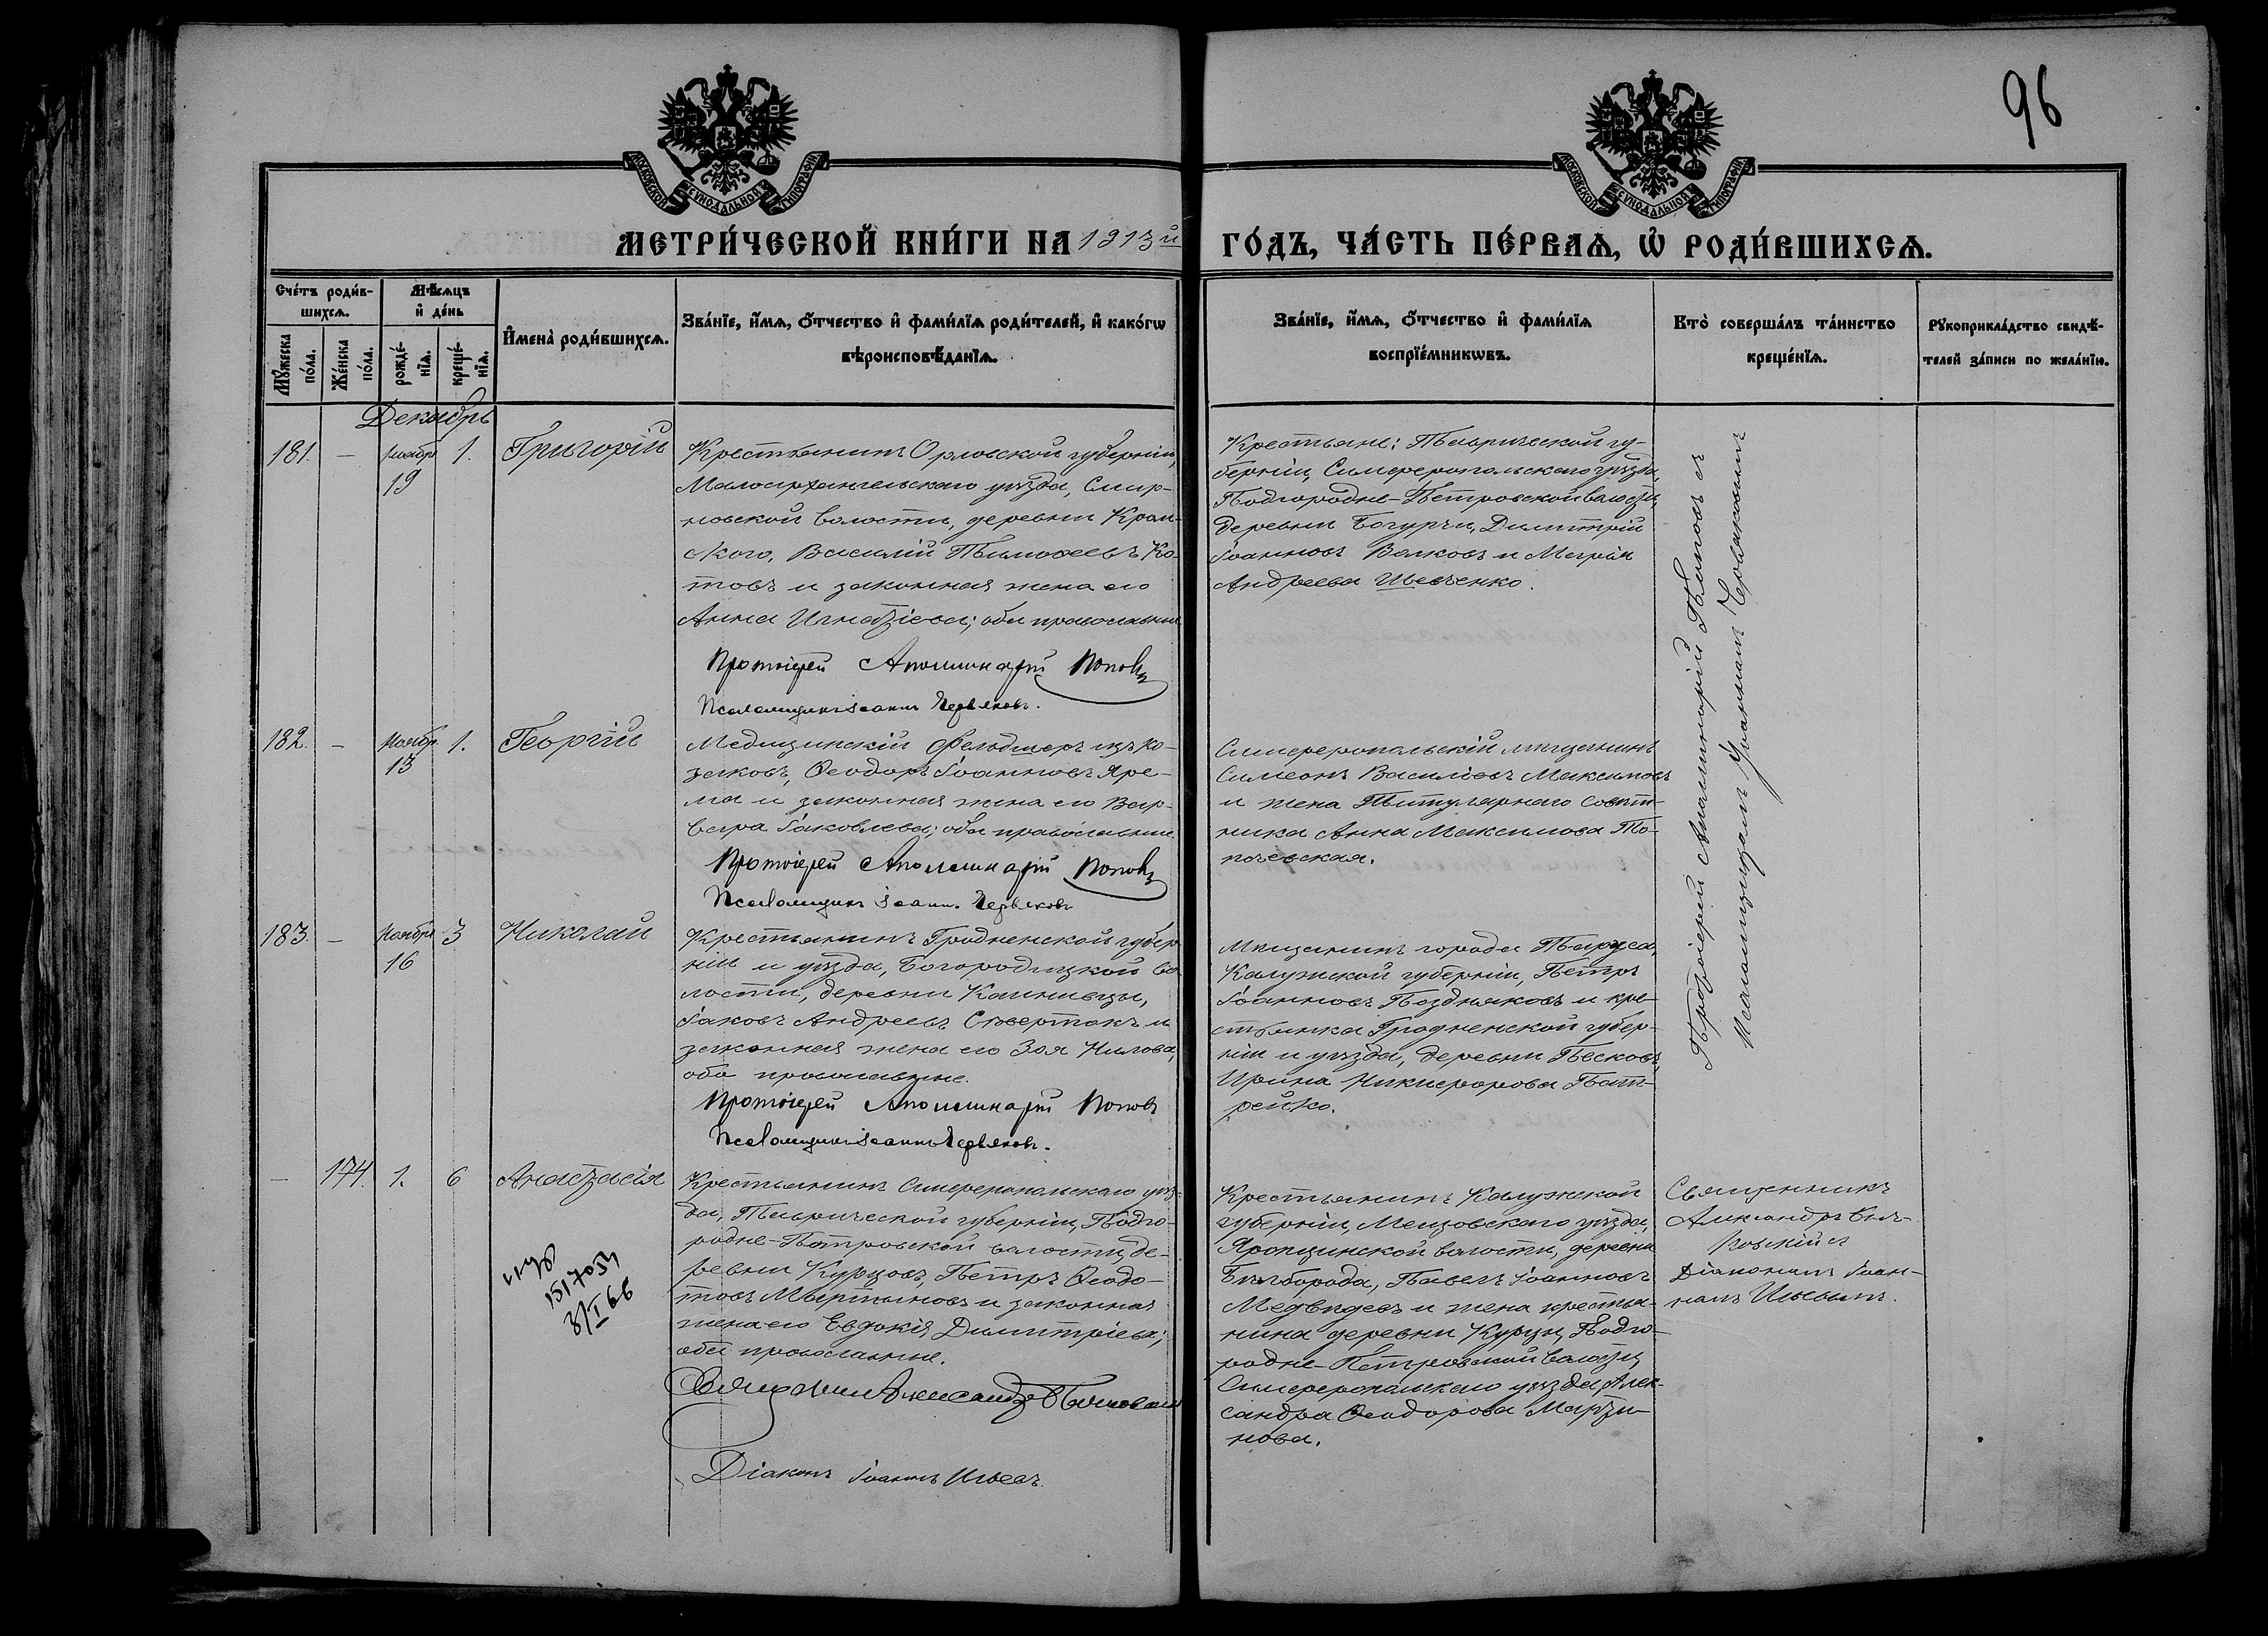 96
МОСКОВСКОЙ СѴНОДАЛЬНОЙ ТИПОГРАФІИ
МОСКОВСКОЙ СѴНОДАЛЬНОЙ ТИПОГРАФІИ
МЕТРИ́ЧЕСКОЙ КНИ́ГИ НА 1913й ГО́ДЪ, ЧА́СТЬ ПЕ́РВАѦ, Ѡ҆ РОДИ́ВШИХСѦ.
Сче́тъ роди́в-
шихсѧ.
Мꙋ́жеска по́ла.
Же́нска по́ла.
Мѣ́сѧцъ
и҆ де́нь
рожде́-
нїѧ.
креще́-
нїѧ.
И҆мена̀ роди́вшихсѧ.
Зва́нїе, и҆́мѧ, ѻ҆́тчество и҆ фамі́лїѧ роди́телей, и҆ како́гѡ
вѣроисповѣ́данїѧ.
Зва́нїе, и҆́мѧ, ѻ҆́тчество и҆ фамі́лїѧ
воспрїе́мникѡвъ.
Кто̀ соверша́лъ та́инство
креще́нїѧ.
Рꙋкоприкла́дство свидѣ́-
телей за́писи по жела́нїю.
Декабрь
181. — Ноябр 19 1. Григорій
Крестьянинъ Орловской губерніи,
Малоархангельскаго уѣзда, Смир-
новской волости, деревни Кром-
ского, Василій Тимофеевъ Ко-
товъ и законная жена его
Анна Игнатіева; оба православные
Протоіерей Аполлинарій Поповъ
Псаломщикъ Іоаннъ Червяковъ.
Крестьяне: Таврической гу-
берніи, Симферопольскаго уѣзда,
Подгородне-Петровской волости,
деревни Богурчи, Димитрій
Іоанновъ Волковъ и Марія
Андреева Шевченко.
Протоіерей Аполлинарій Поповъ съ
Псаломщикомъ Іоанномъ Червяковымъ
182. — Ноябр. 13 1. Георгій
Медицинскій фельдшеръ изъ ко-
заковъ, Ѳеодоръ Іоанновъ Яре-
ма и законная жена его Вар-
вара Іаковлева; оба православные.
Протоіерей Аполлинарій Поповъ
Псаломщикъ Іоаннъ Червяковъ
Симферопольскій мѣщанинъ
Симеонъ Василіевъ Максимовъ
и жена Титулярнаго Совѣт-
ника Анна Максимова То-
почевская.
183. — Ноября 16 3 Николай
Крестьянинъ Гродненской губер-
ніи и уѣзда, Богородицкой во-
лости, деревни Каиневцы,
Іаковъ Андреевъ Сѣвертокъ и
законная жена его Зоя Нилова,
оба православные.
Протоіерей Аполлинарій Поповъ
Псаломщикъ Іоаннъ Червяковъ.
Мѣщанинъ города Таруса,
Калужской губерніи, Петръ
Іоанновъ Поздняковъ и кре-
стьянка Гродненской губер-
ніи и уѣзда, деревни Песковъ,
Ирина Никифорова Пат-
рейко.
— 174. 1. 6 Анастасія
Крестьянинъ Симферопольскаго уѣз-
да, Таврической губерніи, Подго-
родне-Петровской волости, де-
ревни Курцовъ, Петръ Ѳеодо-
товъ Мартыновъ и законная
жена его Евдокія Димитріева;
оба православные.
Священникъ Александръ
Діаконъ Іоаннъ Ильевъ.
8/I 66
Крестьянинъ Калужской
губерніи, Мещовскаго уѣзда,
Яропцинской волости, деревни
Бѣлборода, Павелъ Іоанновъ
Медвѣдевъ и жена крестья-
нина деревни Курцы, Подго-
родне-Петровской волости,
Симферопольскаго уѣзда, Алек-
сандра Ѳеодорова Марты-
нова.
Священникъ
Александръ
Діакономъ Іоан-
номъ Ильевымъ.